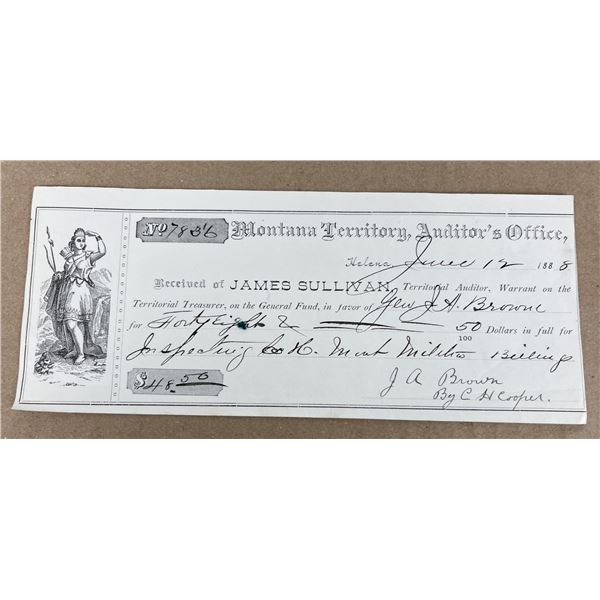 No 7836 Montana Territory, Auditor's Office,
Helena June 12 1888
Received of JAMES SULLIVAN, Territorial Auditor, Warrant on the
Territorial Treasurer, on the General Fund, in favor of Gen J A. Brown
for Forty Eight & 50/100 Dollars in full for
Inspecting Co H. Mont Militia Billings
$48.50
J A Brown
By C H Cooper.